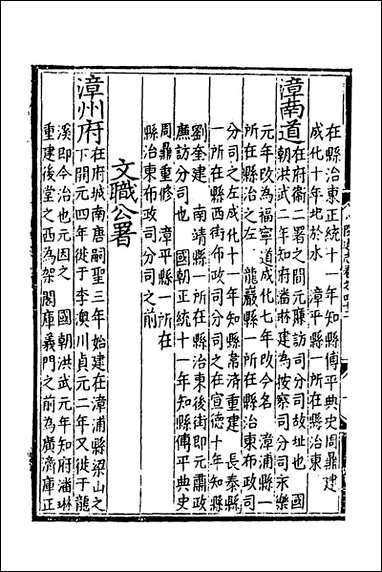 在縣治東正統十一年知縣傅平典史周鼎建
成化十年圯於水　漳平縣一所在縣治東
漳南道在府衛二署之間元廉訪司分司故址也　國
朝洪武二年知府潘琳建為按察司分司永樂
元年改為福寧道成化七年改今名　漳浦縣一
所在縣治之左　龍巖縣一所在縣治東布政司
分司之左成化十一年知縣韋濟重建　長泰縣
一所在縣西街布政司分司之在宣德十年知縣
劉奎建　南靖縣一所在縣治東後街即元肅政
廉訪分司也　國朝正統十一年知縣傅平典史
周鼎重修　漳平縣一所在
縣治東布政司分司之前
文職公署
漳州府在府城南唐嗣聖三年始建在漳浦縣梁山之
下開元四年徙于李澳川貞元二年又徙于龍
溪即今治也元因之　國朝洪武元年知府潘琳
重建後堂之西為架閣庫儀門之前為廣濟庫正